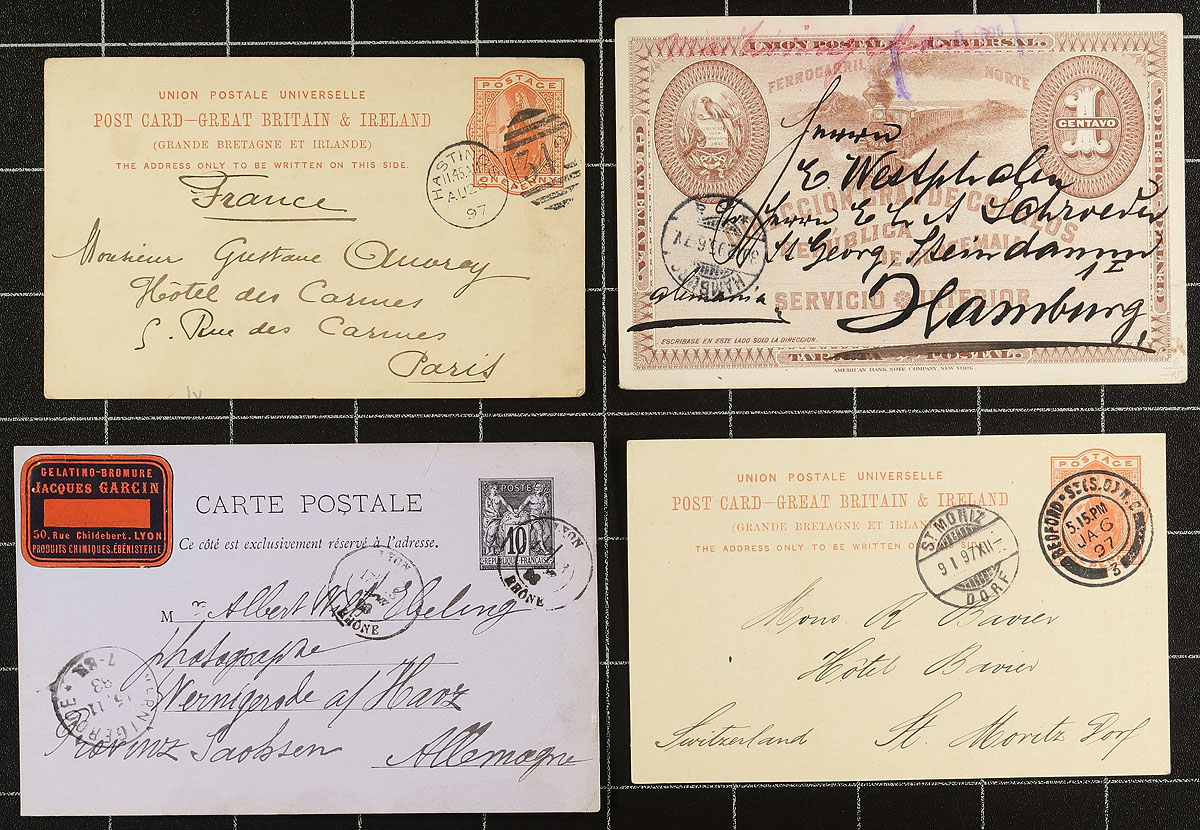 UNION POSTALE UNIVERSELLE
POST CARD—GREAT BRITAIN & IRELAND
(GRANDE BRETAGNE ET IRLANDE)
THE ADDRESS ONLY TO BE WRITTEN ON THIS SIDE.
POSTAGE
ONE PENNY
HASTINGS
11.45 AM
97
France
Monsieur Gustave
Hôtel des Carmes
5. Rue des Carmes
Paris
UNION POSTAL UNIVERSAL
FERROCARRIL NORTE
1
CENTAVO
DIRECCION GRAL DE CORREOS
REPUBLICA
DE GUATEMALA
SERVICIO INTERIOR
Herrn
E. Westphalen
pr Herrn E. C. A Schroeder
St Georg, Steindamm
1 I
alemania
Hamburg
ESCRIBASE EN ESTE LADO SOLO LA DIRECCION.
TARJETA POSTAL.
AMERICAN BANK NOTE COMPANY, NEW YORK.
GELATINO-BROMURE
JACQUES GARCIN
50, Rue Childebert, LYON
PRODUITS CHIMIQUES. ÉBÉNISTERIE
CARTE POSTALE
Ce côté est exclusivement réservé à l'adresse.
POSTE
10
REPUBLIQUE FRANÇAISE
LYON
RHÔNE
LYON
RHÔNE
M r Albert W Ebeling
photographe
Vernigrode a/ Harz
Provinz Sachsen
Allemagne
WERNIGERODE
15.11
83
7-8N
UNION POSTALE UNIVERSELLE
POST CARD—GREAT BRITAIN & IRELAND
(GRANDE BRETAGNE ET
THE ADDRESS ONLY TO BE WRITTEN ON
POSTAGE
BEDFORD ST (S.O) W.C
5.15 PM
JA 6
97
3
ST MORIZ
9 I 97 XII-
DORF
Mons. R Bavier
Hôtel Bavier
Switzerland St. Moritz Dorf